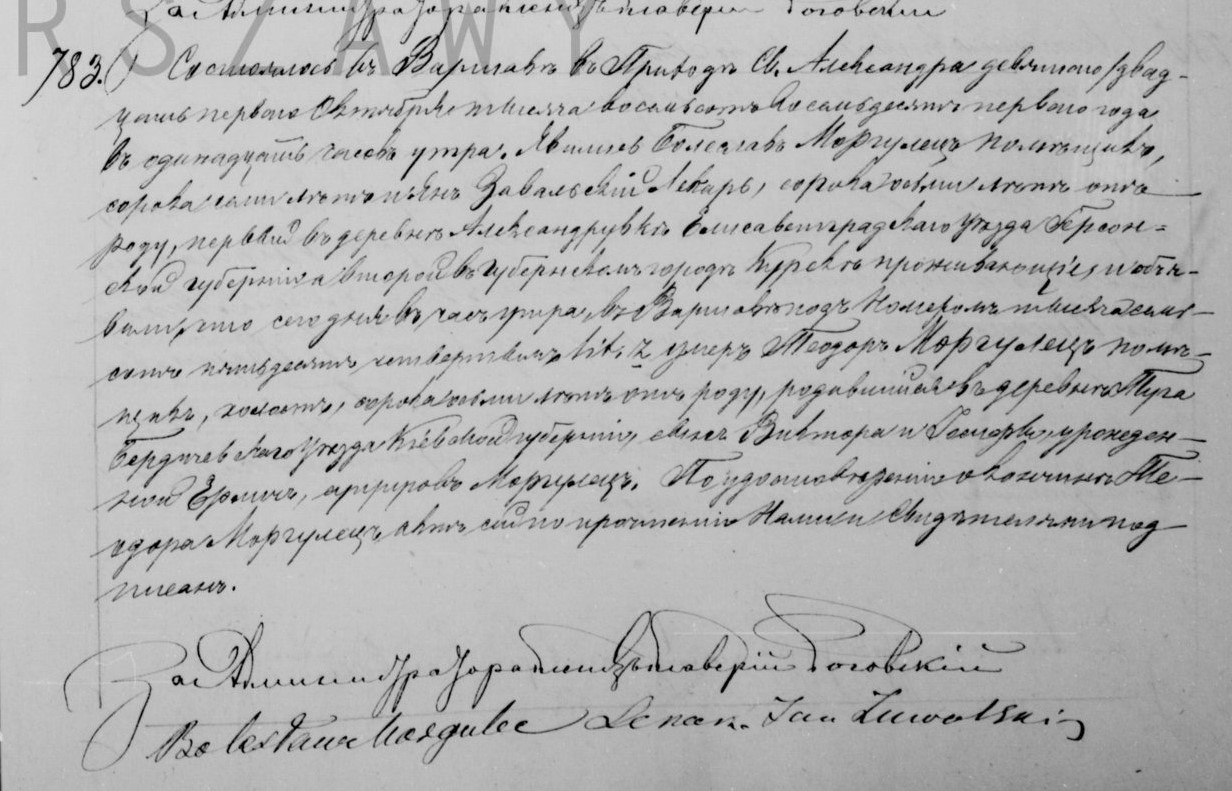 RSZAWY
За Администратора Ксендзъ Ксаверій Роговскій
783. Состоялось въ Варшавѣ въ Приходѣ Св. Александра девятаго/двад-
цать перваго Октября тысяча восемьсотъ восемьдесятъ перваго года
въ одинадцать часовъ утра. Явились Болеславъ Моргулецъ помѣщикъ,
сорока семи лѣтъ и Янъ Завальскій Лекарь, сорока осьми лѣтъ отъ
роду, первый въ деревнѣ Александрувкѣ Елисаветградскаго Уѣзда Герсон=
ской губерніи а второй въ губернскомъ городѣ Курскѣ проживающіе, и объя-
вили, что сего дня въ часъ утра, въ Варшавѣ подъ Номеромъ тысяча семь-
сотъ пятьдесятъ четвертымъ lit: Z умеръ Теодоръ Моргулецъ помѣ-
щикъ, холостъ, сорока осьми лѣтъ отъ роду, родившійся въ деревнѣ
Бердичевскаго Уѣзда Кіевской губерніи, сынъ Виктора и урожден-
ной супруговъ Моргулецъ. По удостовѣреніи о кончинѣ Те-
одора Моргулецъ, актъ сей по прочтеніи Нами и Свидѣтелями под
писанъ.
За Администратора Ксендзъ Ксаверій Роговскій
Bolesław Morgulec Lekarz. Jan Zawalski